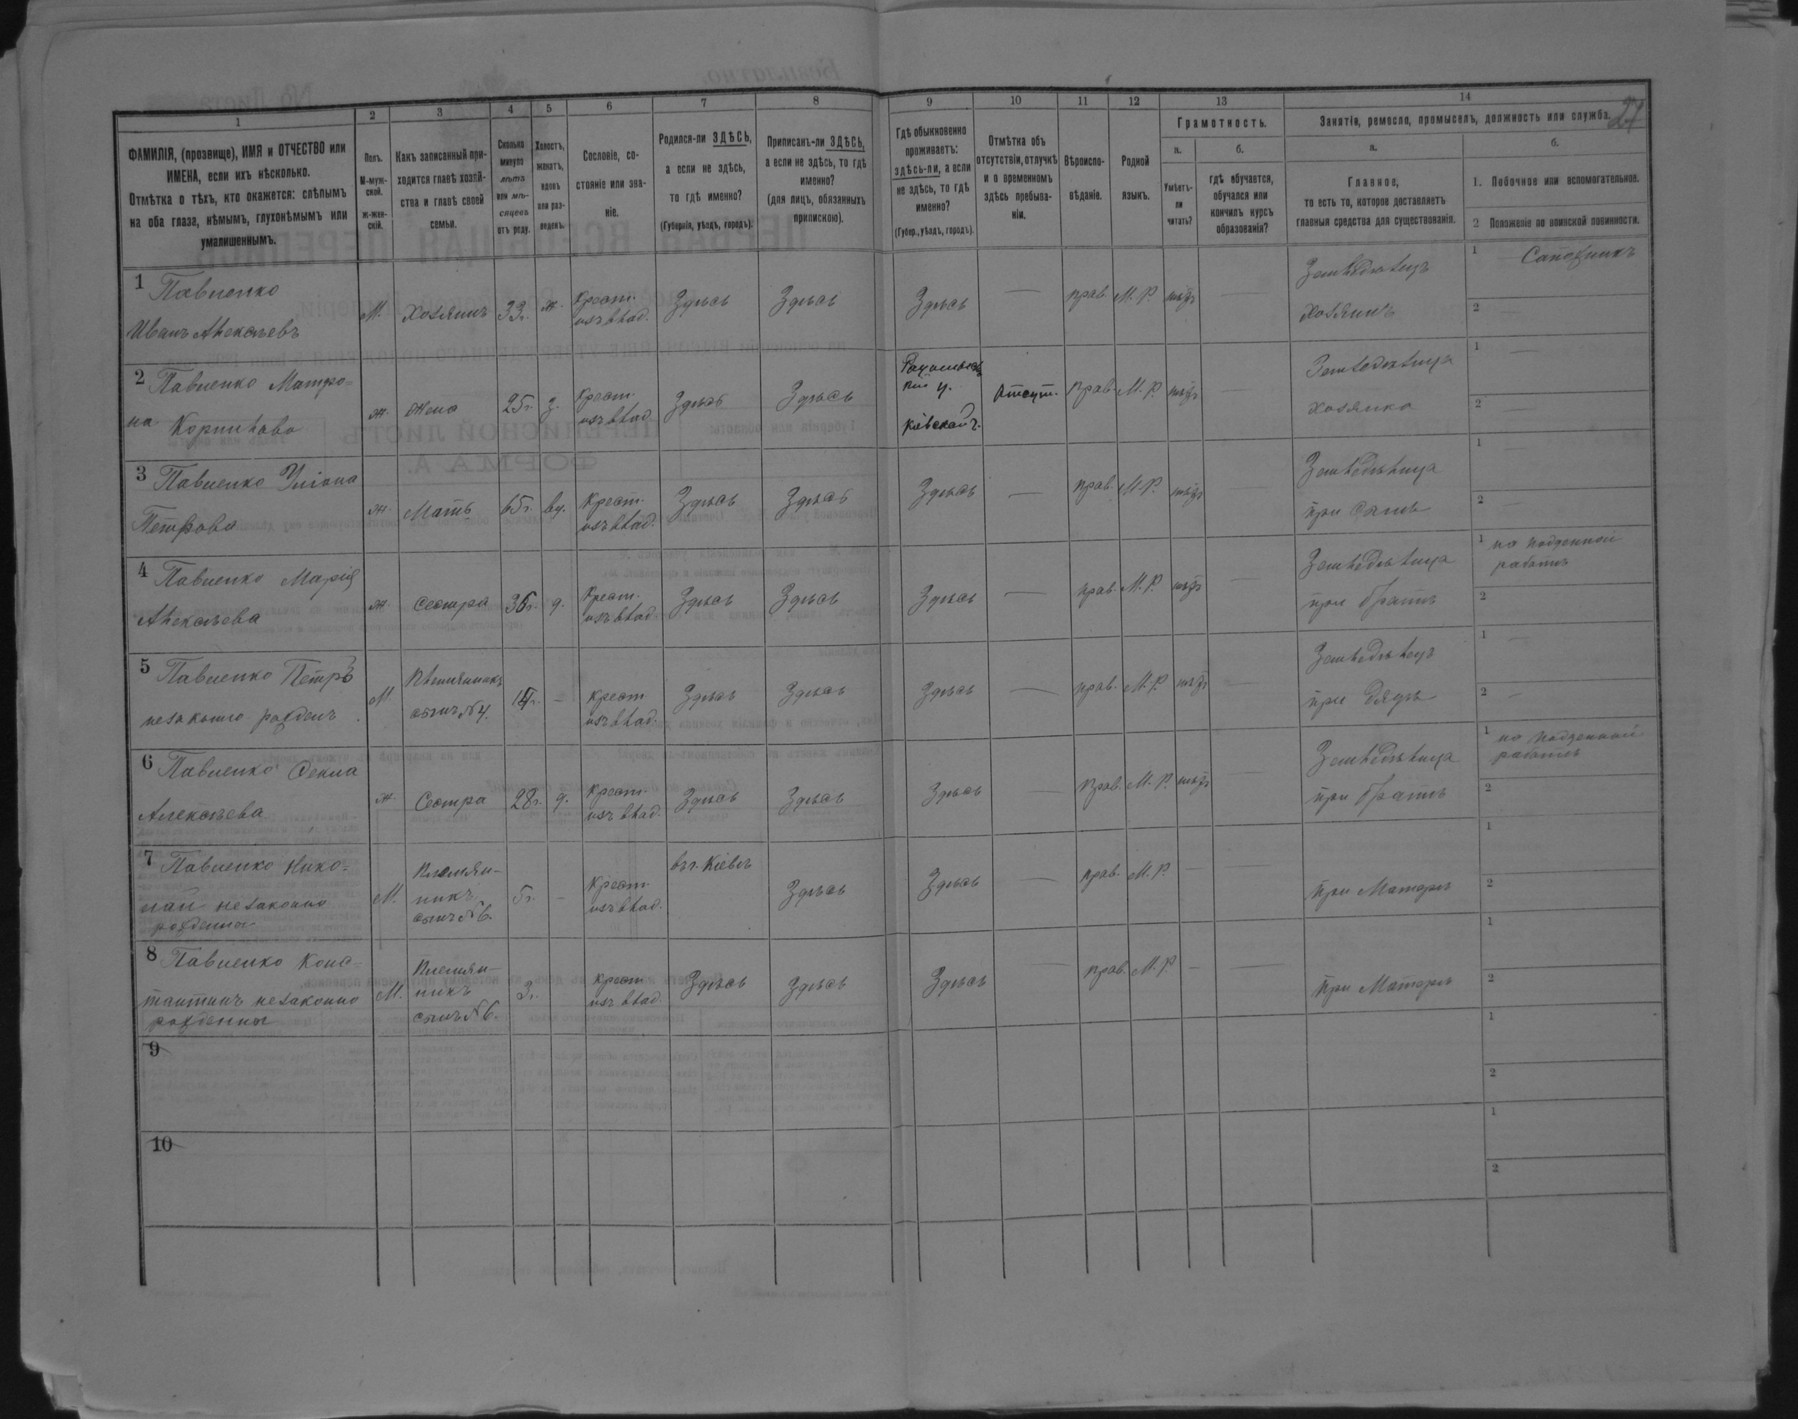 24
1 2 3 4 5 6 7 8 9 10 11 12 13 14
ФАМИЛІЯ, (прозвище), ИМЯ и ОТЧЕСТВО или
ИМЕНА, если ихъ нѣсколько.
Отмѣтка о тѣхъ, кто окажется: слѣпымъ
на оба глаза, нѣмымъ, глухонѣмымъ или
умалишеннымъ.
Полъ.
М-муж-
ской.
ж-жен-
скій.
Какъ записанный при-
ходится главѣ хозяй-
ства и главѣ своей
семьи.
Сколько
минуло
лѣтъ
или мѣ-
сяцевъ
отъ роду.
Холостъ,
женатъ,
вдовъ
или раз-
веденъ.
Сословіе, со-
стояніе или зва-
ніе.
Родился-ли ЗДѢСЬ,
а если не здѣсь,
то гдѣ именно?
(Губернія, уѣздъ, городъ).
Приписанъ-ли ЗДѢСЬ,
а если не здѣсь, то гдѣ
именно?
(для лицъ, обязанныхъ
припискою).
Гдѣ обыкновенно
проживаетъ:
здѣсь-ли, а если
не здѣсь, то гдѣ
именно?
(Губер., уѣздъ, городъ).
Отмѣтка объ
отсутствіи, отлучкѣ
и о временномъ
здѣсь пребыва-
ніи.
Вѣроиспо-
вѣданіе.
Родной
языкъ.
Грамотность.
а.
Умѣетъ-
ли
читать?
б.
гдѣ обучается,
обучался или
кончилъ курсъ
образованія?
Занятіе, ремесло, промыселъ, должность или служба.
а.
Главное,
то есть то, которое доставляетъ
главныя средства для существованія.
б.
1. Побочное или вспомогательное.
2 Положеніе по воинской повинности.
1 Павленко
Иванъ Алексѣевъ
М. Хозяинъ 33г. ж. Крест. изъ влад. Здѣсь Здѣсь Здѣсь — прав. М. Р. нѣтъ —
Земледѣлецъ
Хозяинъ
1 Сапожникъ
2 —
2 Павленко Матро=
на Корнилова
ж. Жена 25г. з. Крест. изъ влад. Здѣсь Здѣсь
у.
Кіевской г.
Отсут. Прав. М. Р. нѣтъ
Земледѣлица
Хозяйка
1 —
2 —
3 Павленко Уліана
Петрова
ж. Мать 65г. вд. Крест. изъ влад. Здѣсь Здѣсь Здѣсь — прав. М. Р. нѣтъ —
Земледѣлица
при сынѣ
1 —
2 —
4 Павленко Марія
Алексѣева
ж. Сестра 36г. д. Крест. изъ влад. Здѣсь Здѣсь Здѣсь — прав. М. Р. нѣтъ —
Земледѣлица
при братѣ
1 по поденной
работѣ
2
5 Павленко Петръ
незаконно-рожден.
М. Племянникъ
сынъ №4.
14г. — Крест. изъ влад. Здѣсь Здѣсь Здѣсь — прав. М. Р. нѣтъ
Земледѣлецъ
при дядѣ
1 —
2 —
6 Павленко Фекла
Алексѣева
ж. Сестра 28г. д. Крест. изъ влад. Здѣсь Здѣсь Здѣсь — Прав. М. Р. нѣтъ —
Земледѣлица
при братѣ
1 по поденной
работѣ
2
7 Павленко Нико=
лай незаконно
рожденный
М. Племян-
никъ
сынъ №6.
5г. — Крест. изъ влад. въ г. Кіевѣ Здѣсь Здѣсь — прав. М. Р. — —
при Матери
1
2
8 Павленко Конс=
тантинъ незаконно
рожденный
М. Племян-
никъ
сынъ №6.
3г. Крест. изъ влад. Здѣсь Здѣсь Здѣсь — прав. М. Р. — —
при Матери
1
2
9
1
2
10
1
2